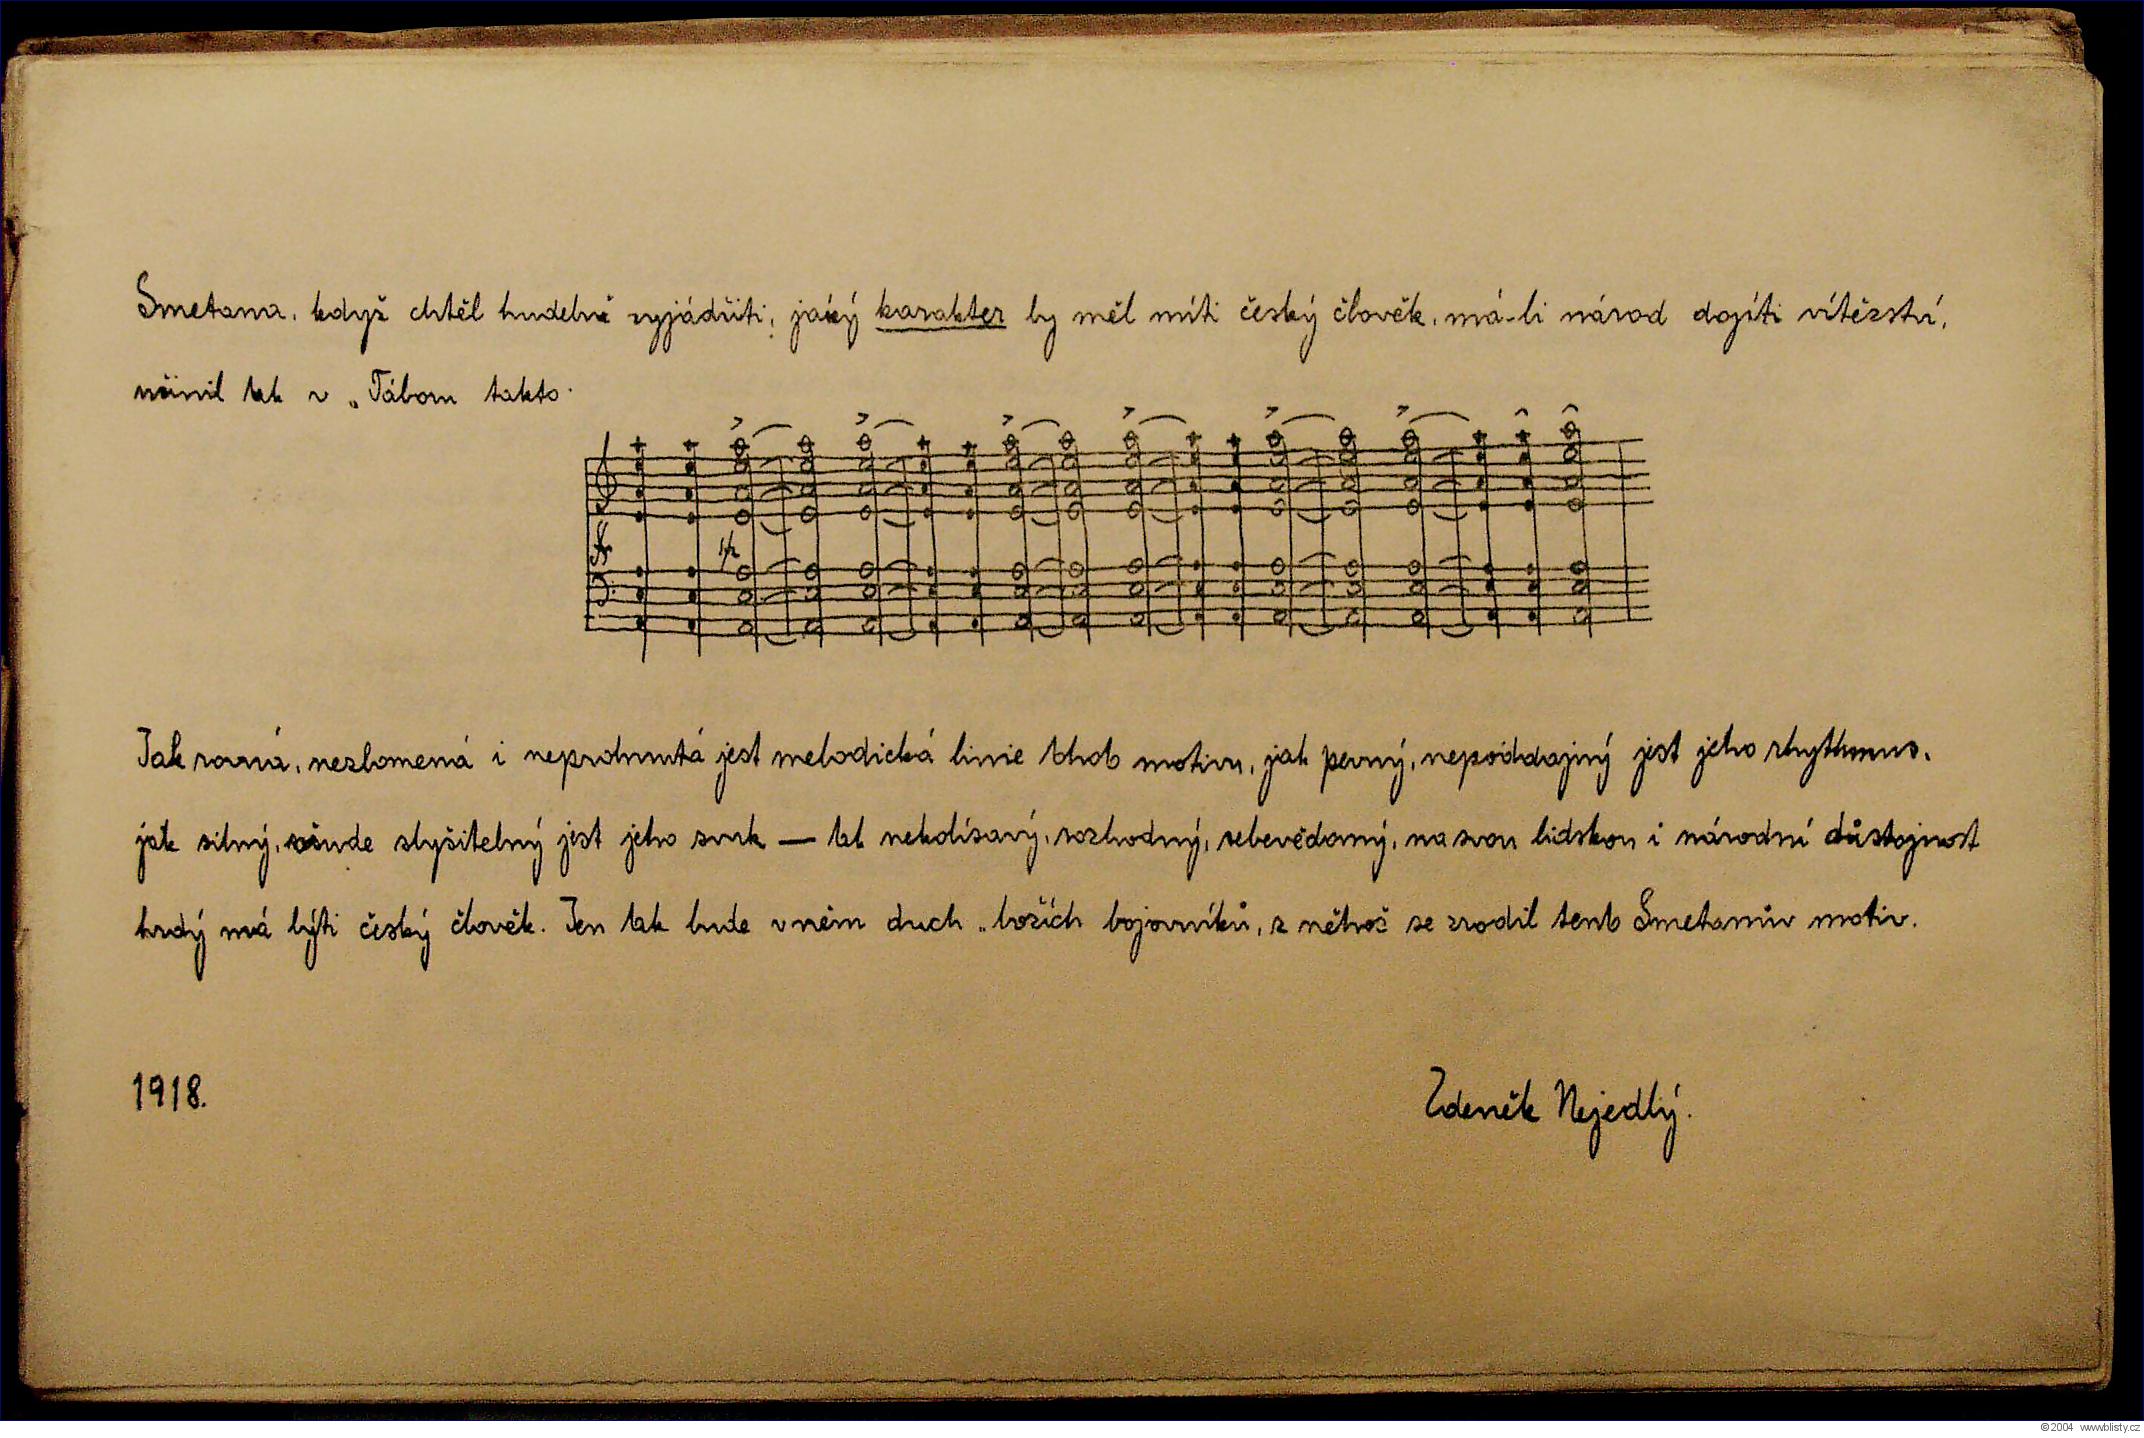 Smetana, když chtěl hudebně vyjádřiti, jaký karakter by měl míti český člověk, má-li národ dojíti vítězství,
učinil tak v „Táboru takto.
Jak rovná, nezlomená i neprohnutá jest melodická linie toho motivu, jak pevný, nepoddajný jest jeho rhythmus,
jak silný, všude slyšitelný jest jeho zvuk — tak nekolísavý, rozhodný, sebevědomý, na svou lidskou i národní důstojnost
hrdý má býti český člověk. Jen tak bude v něm duch „božích bojovníků, z něhož se zrodil tento Smetanův motiv.
1918.
Zdeněk Nejedlý.
© 2004 www.blisty.cz